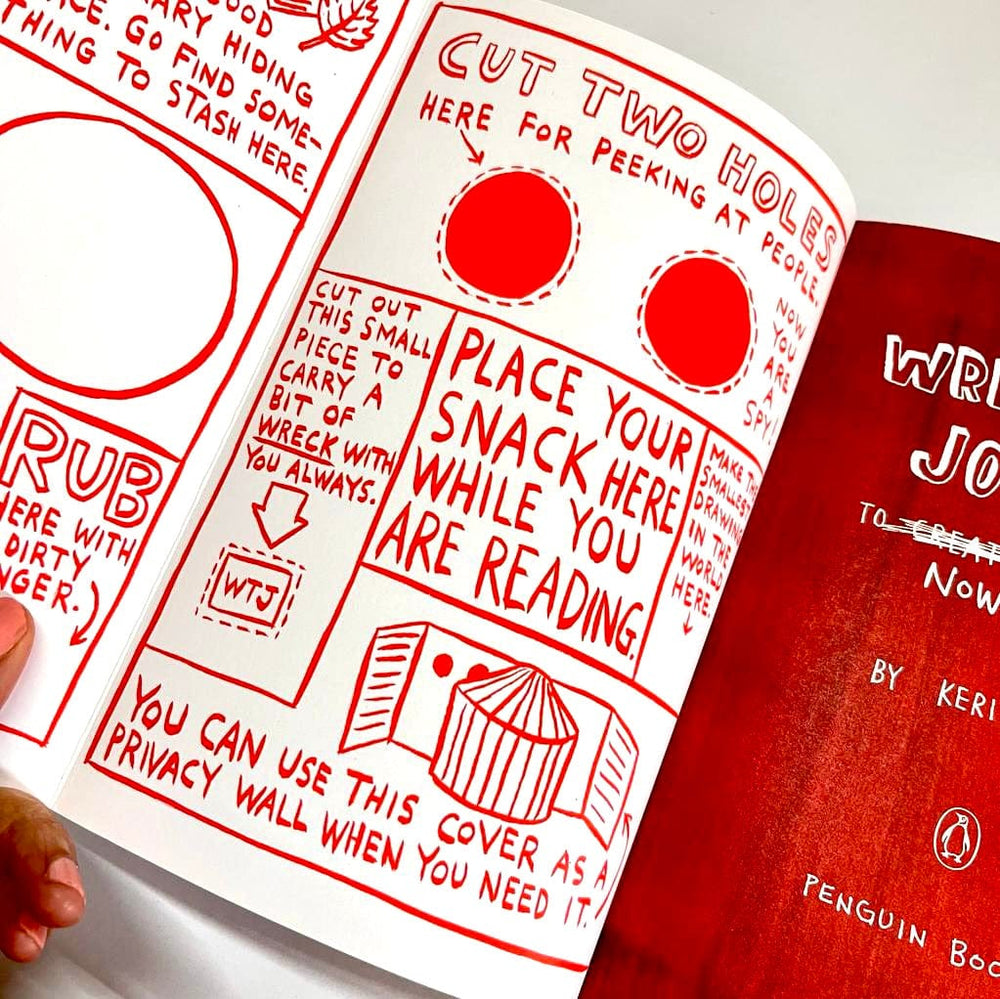 GOOD
HIDING
GO FIND SOME-
THING TO STASH HERE.
RUB
HERE WITH
DIRTY
CUT TWO HOLES
HERE FOR PEEKING AT PEOPLE.
NOW
YOU
ARE
A
SPY!
CUT OUT
THIS SMALL
PIECE TO
CARRY A
BIT OF
WRECK WITH
YOU ALWAYS.
WTJ
PLACE YOUR
SNACK HERE
WHILE YOU
ARE READING.
MAKE THE
SMALLEST
DRAWING
IN THE
WORLD
HERE.
YOU CAN USE THIS COVER AS A
PRIVACY WALL WHEN YOU NEED IT.
TO
NOW
BY KERI
PENGUIN